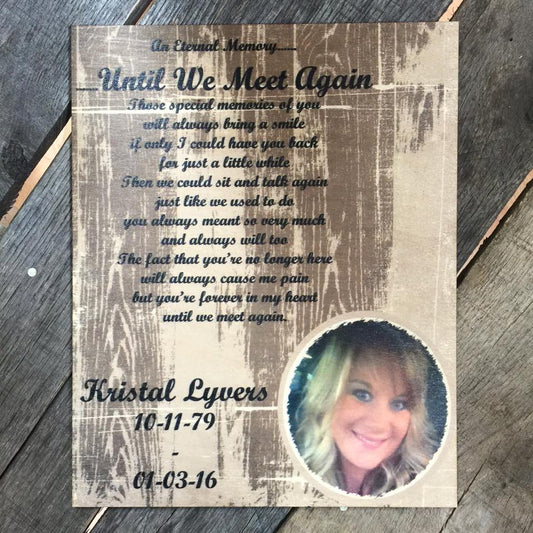 An Eternal Memory......
Until We Meet Again
Those special memories of you
will always bring a smile
if only I could have you back
for just a little while
Then we could sit and talk again
just like we used to do
you always meant so very much
and always will too
The fact that you're no longer here
will always cause me pain
but you're forever in my heart
until we meet again.
Kristal Lyvers
10-11-79
-
01-03-16